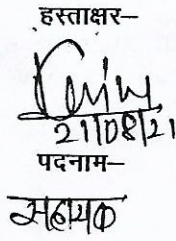 हस्ताक्षर–
21/08/21
पदनाम–
सहायक